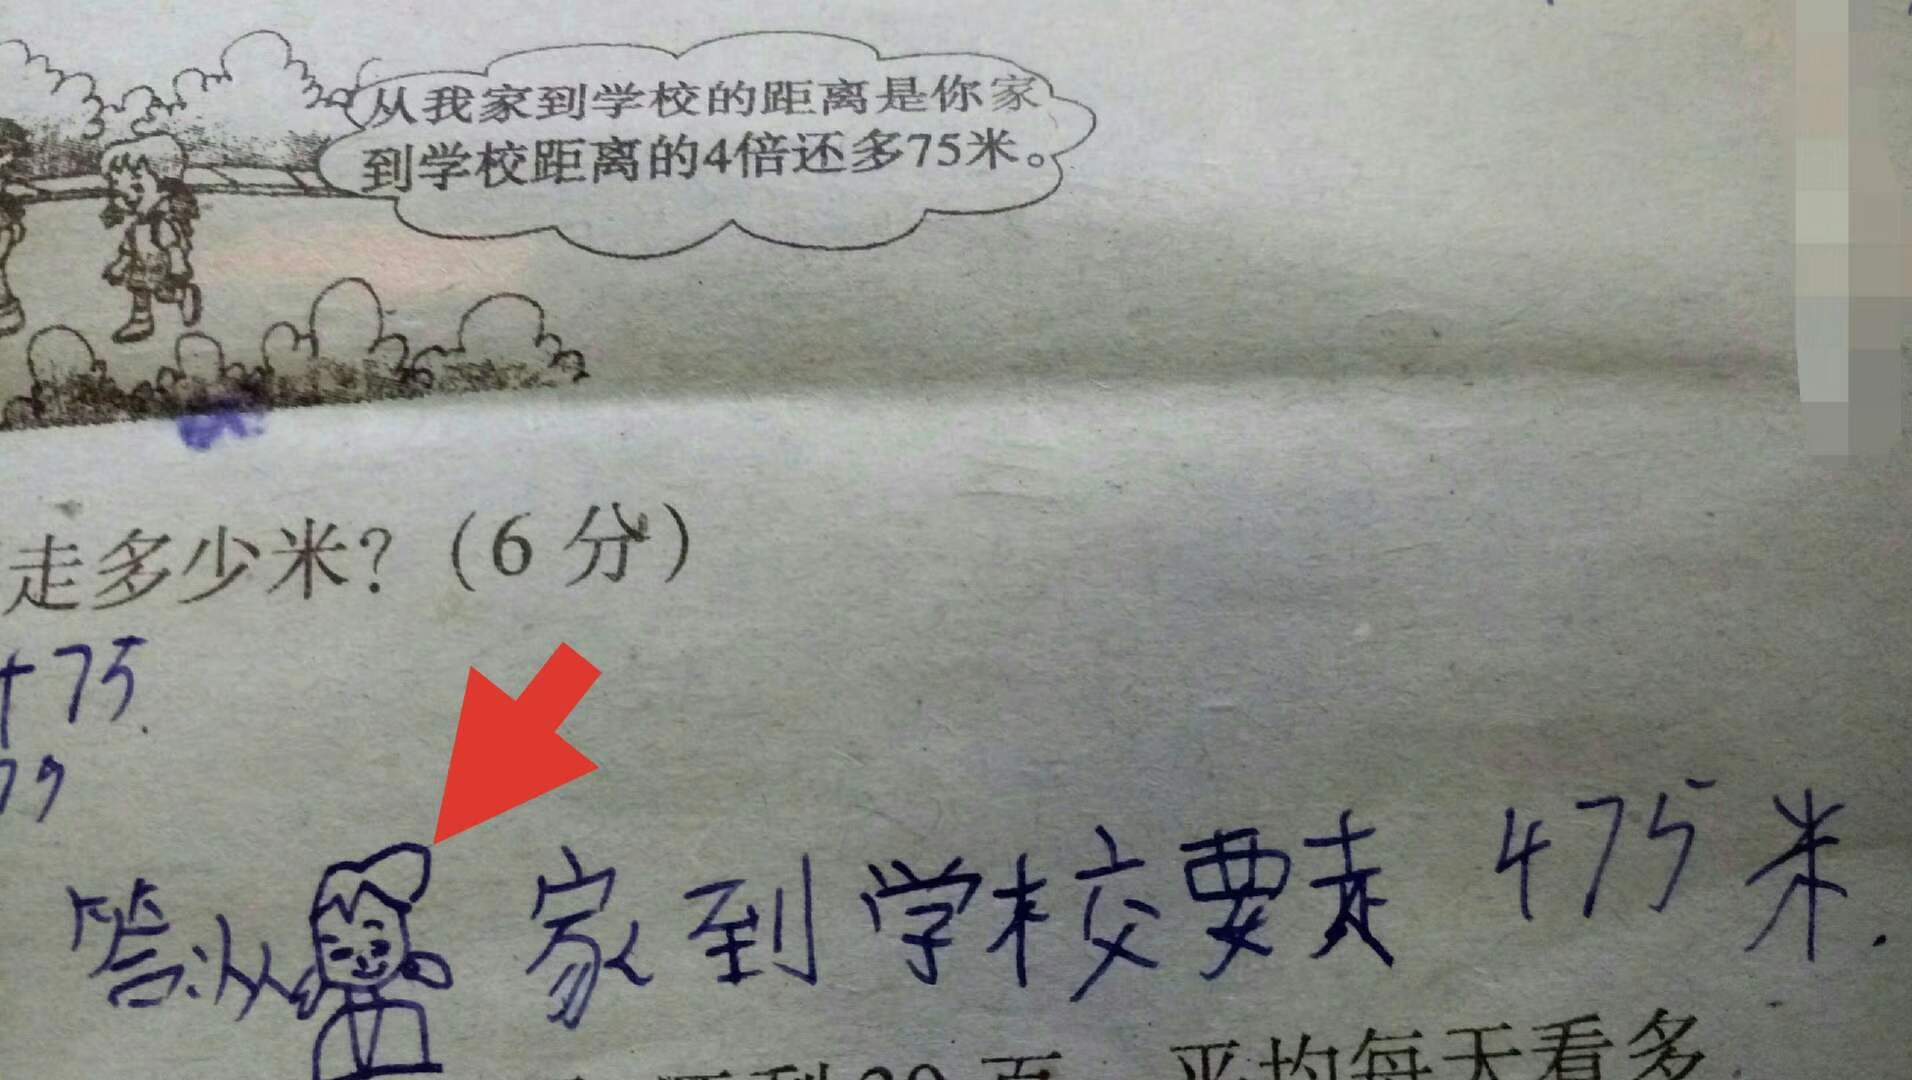 从我家到学校的距离是你家
到学校距离的4倍还多75米。
走多少米?(6 分)
+75
79
答:从 家到学校要走 475米.
20页 平均每天看多